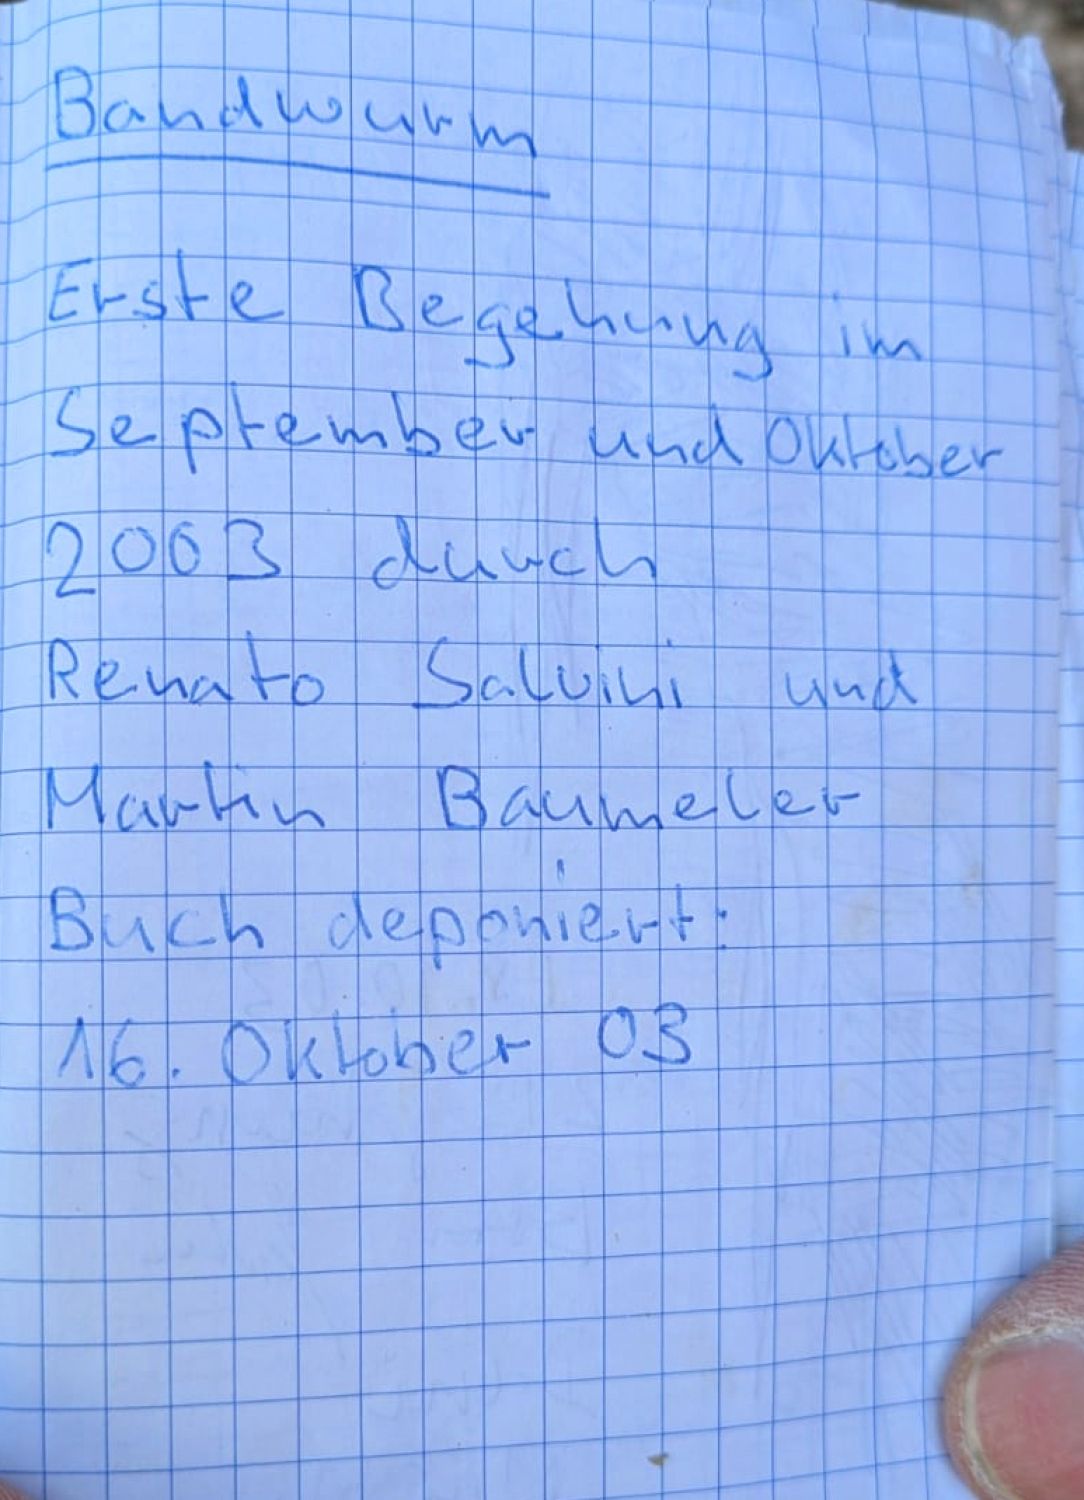 Bandwurm
Erste Begehung im
September und Oktober
2003 durch
Renato Salvini und
Martin Baumeler
Buch deponiert:
16. Oktober 03